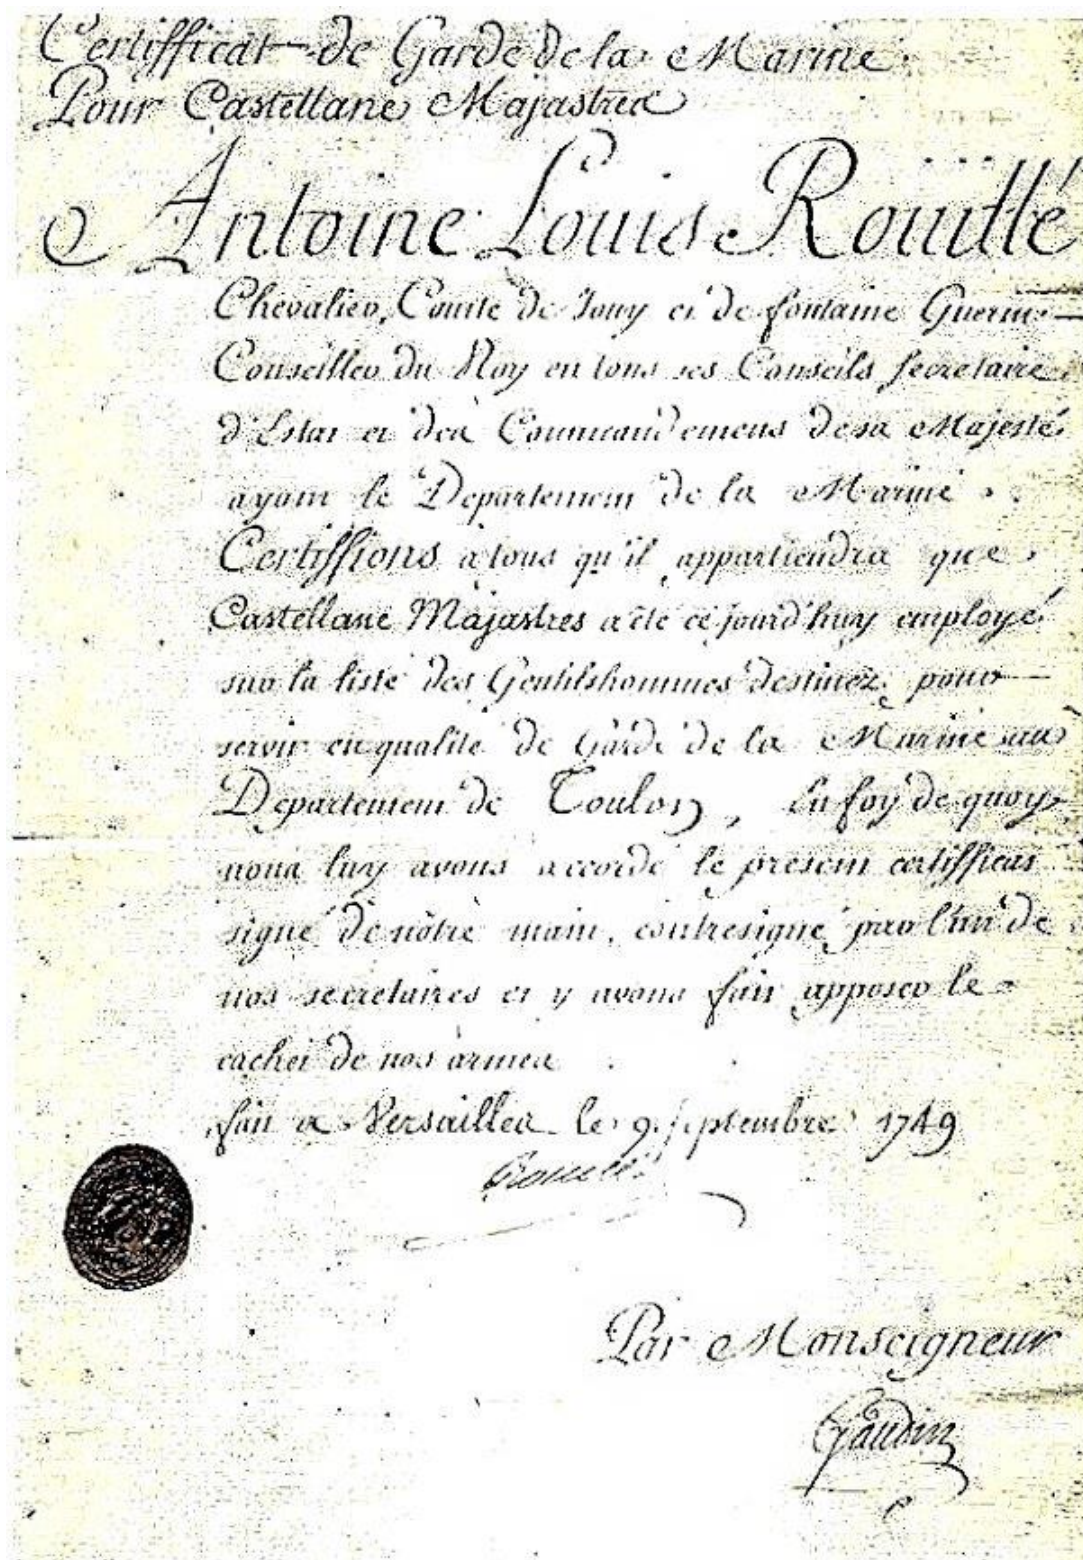 Certifficat de Garde de la Marine
Pour Castellane Majastres
Antoine Louis Roüillé
Chevalier, Comte de Jouy et de fontaine Guerin
Conseiller du Roy en tous ses Conseils secretaire
d'Estat et des Commandemens de sa Majesté
ayant le Departement de la Marine
Certiffions a tous qu'il appartiendra que
Castellane Majastres a été ce jourd'huy employé
sur la liste des Gentilshommes destinez pour
servir en qualité de Garde de la Marine au
Departement de Toulon, En foy de quoy
nous luy avons accordé le present certifficat
signé de nôtre main, contresigné par l'un de
nos secretaires et y avons fait apposer le
cachet de nos armes
fait a Versailles le 9. septembre 1749
Rouillé
Par Monseigneur
Gaudin